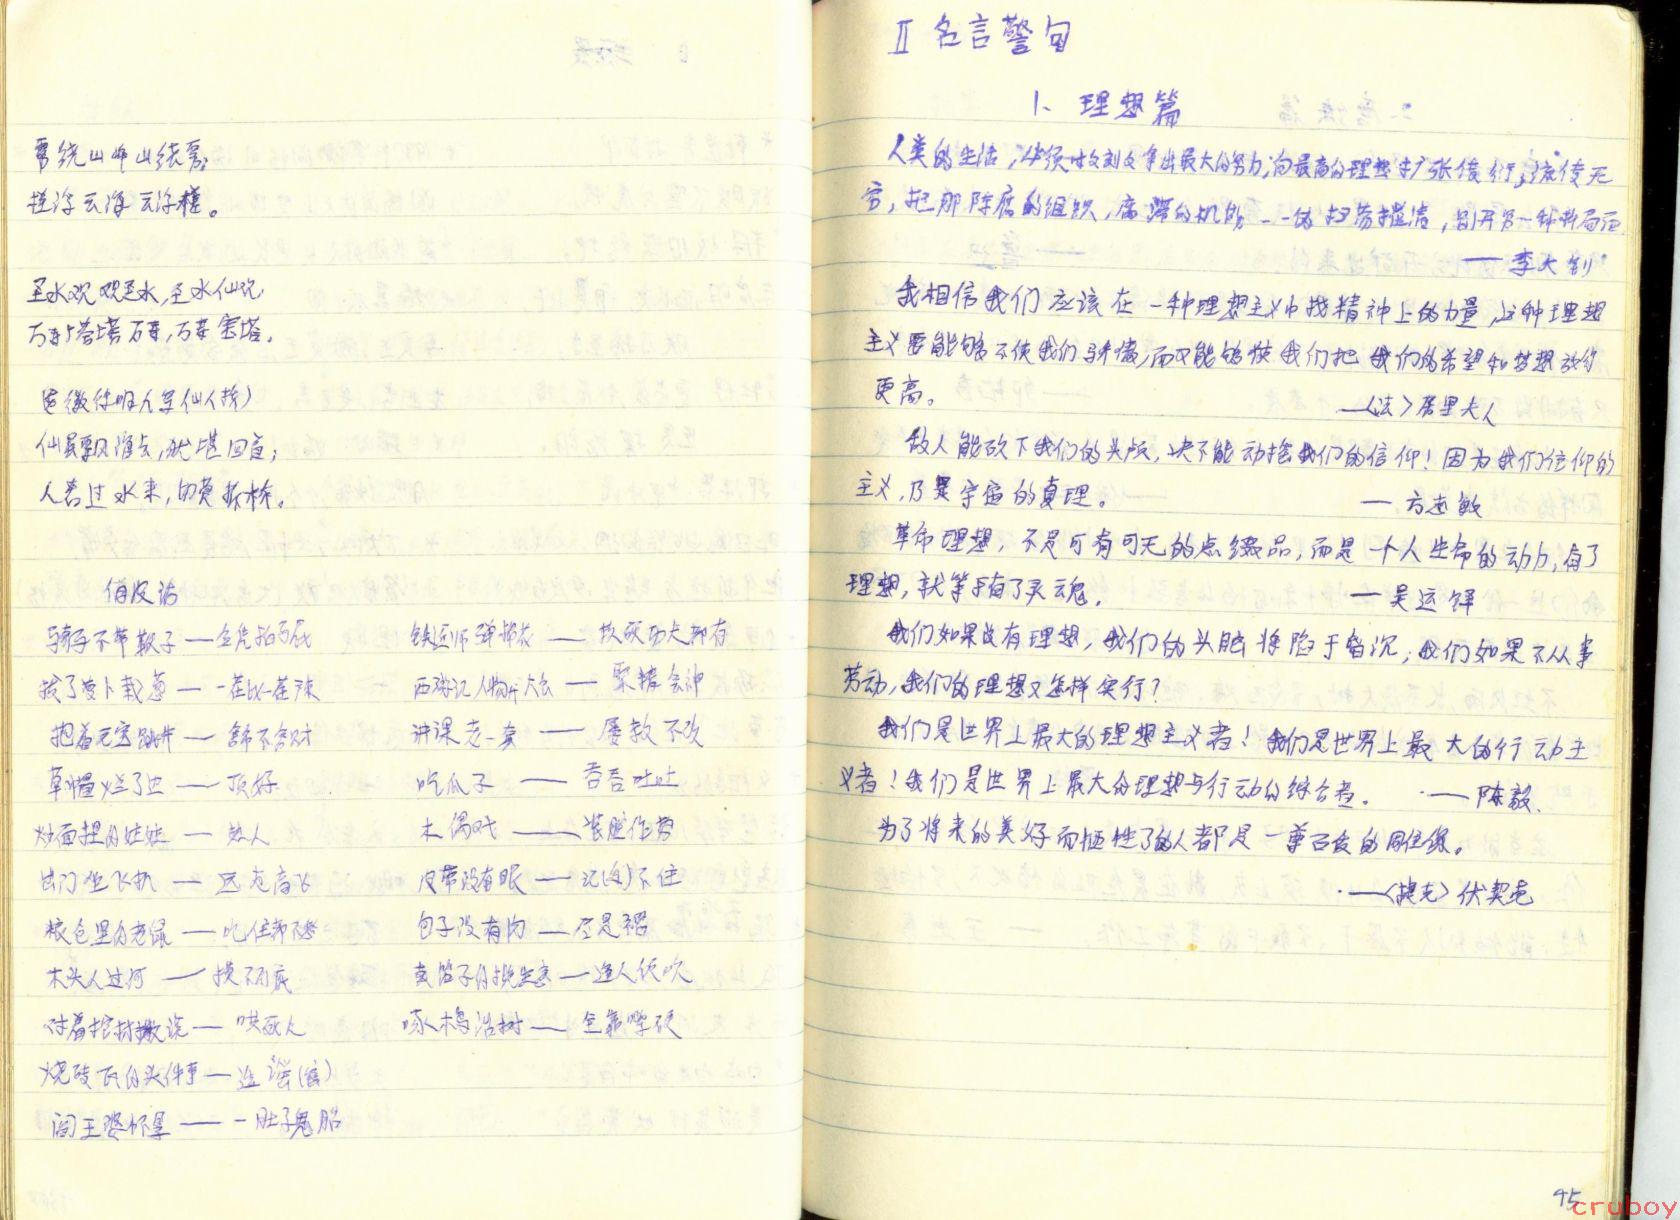 雾绕山峰山绕雾,
楼浮云海云浮楼。
圣水欢欢圣水,圣水仙欢,
万寿塔塔万寿,万寿宝塔,
仙县飘渺去,犹堪回首;
人若过水来,
俏皮话
骑马不带鞍子——全凭拍马屁
拔了萝卜栽葱——一茬比一茬辣
抱着元宝跳井——舍命不舍财
草帽烂了边——顶好
炒面捏的娃娃——熟人
出门坐飞机——远走高飞
粮仓里的老鼠——吃住都不愁
木头人过河——摸不到底
对着棺材撒谎——哄死人
烧砖瓦的头件事——造谣(窑)
阎王婆怀孕——一肚子鬼胎
铁匠师弹棉花——软硬功夫都有
西游记人物开大会——聚精会神
讲课老一套——屡教不改
吃瓜子——吞吞吐吐
木偶戏——装腔作势
皮带没有眼——记(系)不住
包子没有肉——尽是褶
卖笛子的找生意——逢人便吹
啄木鸟治树——全靠嘴硬
II 名言警句
1、理想篇
人类的生活,必须时时刻刻拿出最大的努力,向最高的理想扩张传衍,流传无
穷,把那陈腐的组织,腐滞的机能一一的扫荡摧清,别开另一种新局面
——李大钊
我相信我们应该在一种理想主义中找精神上的力量,这种理想
主义要能够不使我们骄傲,而又能够使我们把我们的希望和梦想放得
更高。
——〈法〉居里夫人
敌人能砍下我们的头颅,决不能动摇我们的信仰!因为我们信仰的
主义,乃是宇宙的真理。
——方志敏
革命理想,不是可有可无的点缀品,而是一个人生命的动力,有了
理想,就等于有了灵魂。
——吴运铎
我们如果没有理想,我们的头脑将陷于昏沉;我们如果不从事
劳动,我们的理想又怎样实行?
我们是世界上最大的理想主义者!我们是世界上最大的行动主
义者!我们是世界上最大的理想与行动的综合者。
——陈毅
为了将来的美好而牺牲了的人都是一尊石质的雕像。
——〈捷克〉伏契克
45
cruboy